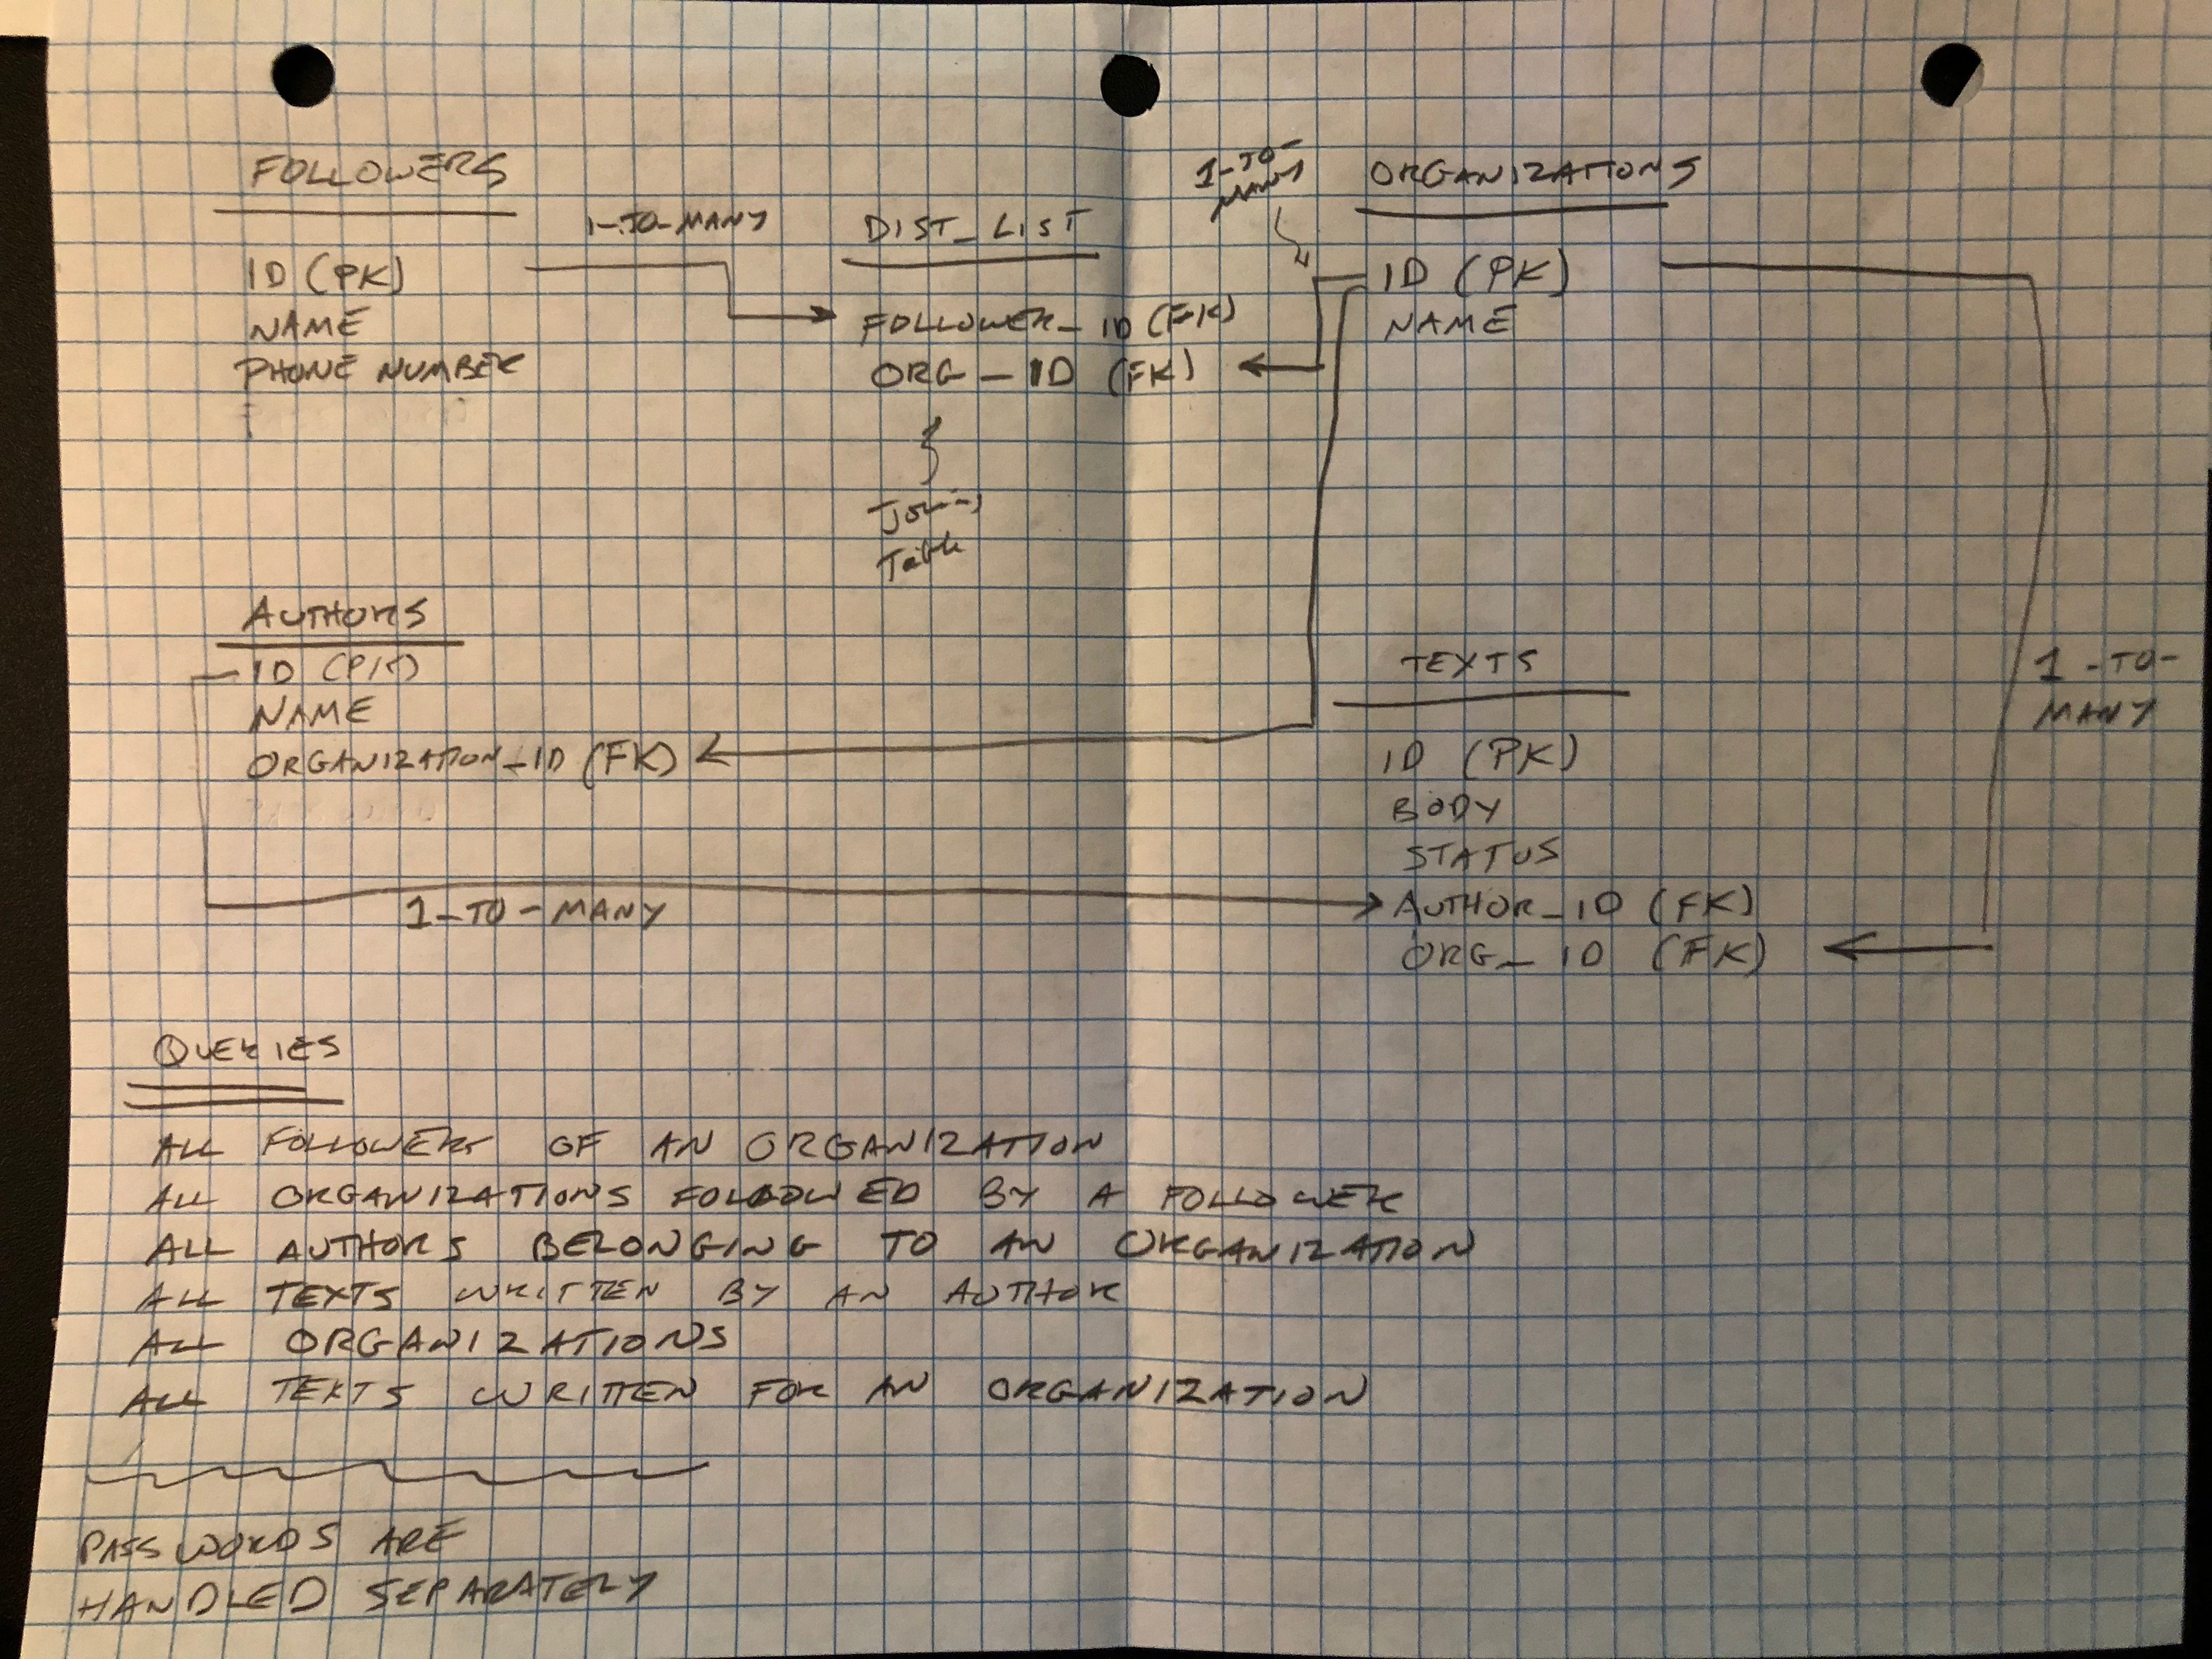 FOLLOWERS
ID (PK)
NAME
PHONE NUMBER
1-TO-MANY
DIST_LIST
FOLLOWER_ID (FK)
ORG_ID (FK)
Joining
Table
1-TO-
MANY
ORGANIZATIONS
ID (PK)
NAME
AUTHORS
ID (PK)
NAME
ORGANIZATION_ID (FK)
1-TO-MANY
TEXTS
ID (PK)
BODY
STATUS
AUTHOR_ID (FK)
ORG_ID (FK)
1-TO-
MANY
QUERIES
ALL FOLLOWERS OF AN ORGANIZATION
ALL ORGANIZATIONS FOLLOWED BY A FOLLOWER
ALL AUTHORS BELONGING TO AN ORGANIZATION
ALL TEXTS WRITTEN BY AN AUTHOR
ALL ORGANIZATIONS
ALL TEXTS WRITTEN FOR AN ORGANIZATION
PASSWORDS ARE
HANDLED SEPARATELY